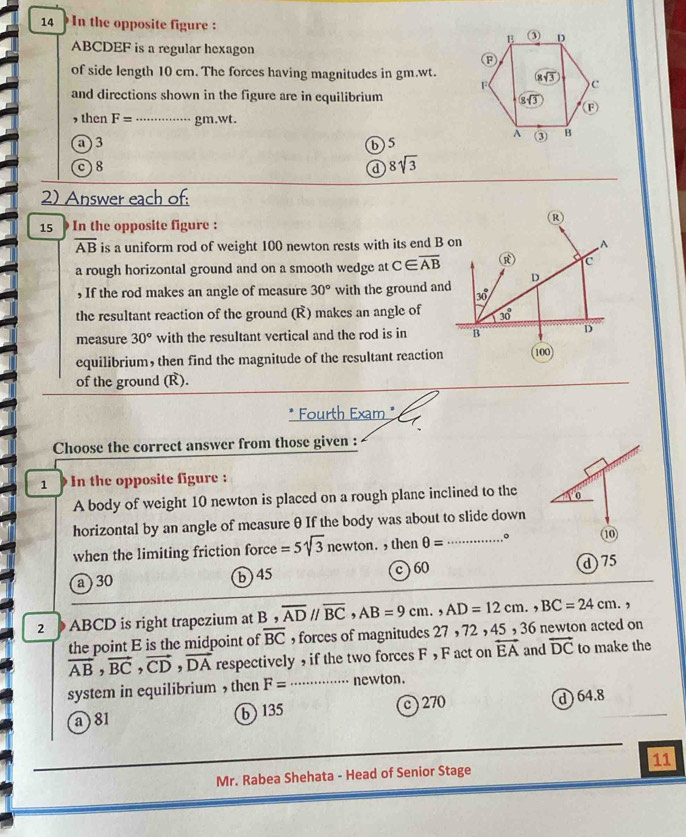 14 In the opposite figure :
ABCDEF is a regular hexagon
of side length 10 cm. The forces having magnitudes in gm.wt.
and directions shown in the figure are in equilibrium
, then F = ............... gm.wt.
a 3 b 5
c 8 d 8√3
E 3 D
F
F 8√3 C
8√3 F
A 3 B
2) Answer each of:
15 In the opposite figure :
AB is a uniform rod of weight 100 newton rests with its end B on
a rough horizontal ground and on a smooth wedge at C ∈ AB
, If the rod makes an angle of measure 30° with the ground and
the resultant reaction of the ground (R̀) makes an angle of
measure 30° with the resultant vertical and the rod is in
equilibrium, then find the magnitude of the resultant reaction
of the ground (R̀).
R
A
R̀ C
D
30°
30°
B D
100
* Fourth Exam *
Choose the correct answer from those given :
1 In the opposite figure :
A body of weight 10 newton is placed on a rough plane inclined to the
horizontal by an angle of measure θ If the body was about to slide down
when the limiting friction force = 5√3 newton. , then θ = ...............°
a 30 b 45 c 60 d 75
θ
10
2 ABCD is right trapezium at B , AD // BC , AB = 9 cm. , AD = 12 cm. , BC = 24 cm. ,
the point E is the midpoint of BC , forces of magnitudes 27 , 72 , 45 , 36 newton acted on
AB , BC , CD , DA respectively , if the two forces F , F act on EA and DC to make the
system in equilibrium , then F = ............... newton.
a 81 b 135 c 270 d 64.8
Mr. Rabea Shehata - Head of Senior Stage
11